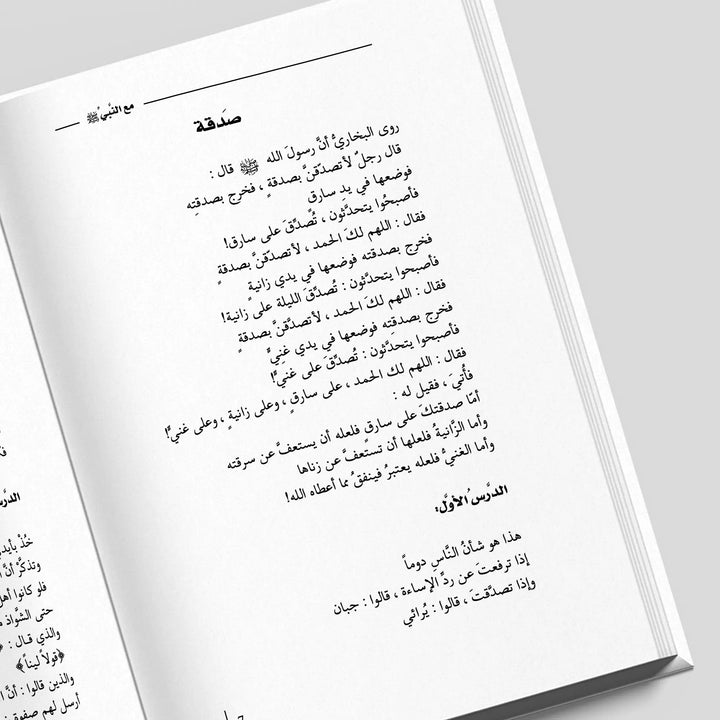 مع النّبيّ ﷺ
صَدَقة
روى البخاريُّ أنَّ رسولَ الله ﷺ قال :
قال رجلٌ لأتصدّقنَّ بصدقةٍ ، فخرج بصدقتِه
فوضعها في يدِ سارق
فأصبحُوا يتحدَّثون ، تُصدِّقَ على سارق!
فقال : اللهم لكَ الحمد ، لأتصدّقنَّ بصدقةٍ
فخرج بصدقته فوضعها في يدي زانيةٍ
فأصبحوا يتحدَّثون : تُصدِّقَ الليلة على زانية!
فقال : اللهم لكَ الحمد ، لأتصدَّقنَّ بصدقةٍ
فخرج بصدقتِه فوضعها في يدي غنيٍّ
فأصبحوا يتحدَّثون : تُصدِّقَ على غنيٍّ!
فقال : اللهم لك الحمد ، على سارقٍ ، وعلى زانيةٍ ، وعلى غنيٍّ!
فأُتيَ ، فقيل له :
أمّا صدقتكَ على سارقٍ فلعله أن يستعفَّ عن سرقته
وأما الزَّانيةُ فلعلها أن تستعفَّ عن زناها
وأما الغنيُّ فلعله يعتبرُ فينفقُ مما أعطاه الله!
الدَّرسُ الأوَّل:
هذا هو شأنُ النَّاسِ دوماً
إذا ترفعتَ عن ردِّ الإساءة ، قالوا : جبان
وإذا تصدَّقتَ ، قالوا : يُرائي
خُذْ بأيد
وتذكَّرْ أنَّ
فلو كانوا أهل
حتى الشَّواذ
والذي قال :
﴿قولاً ليناً﴾
والذين قالوا : أنَّ
أرسل لهم صفوة